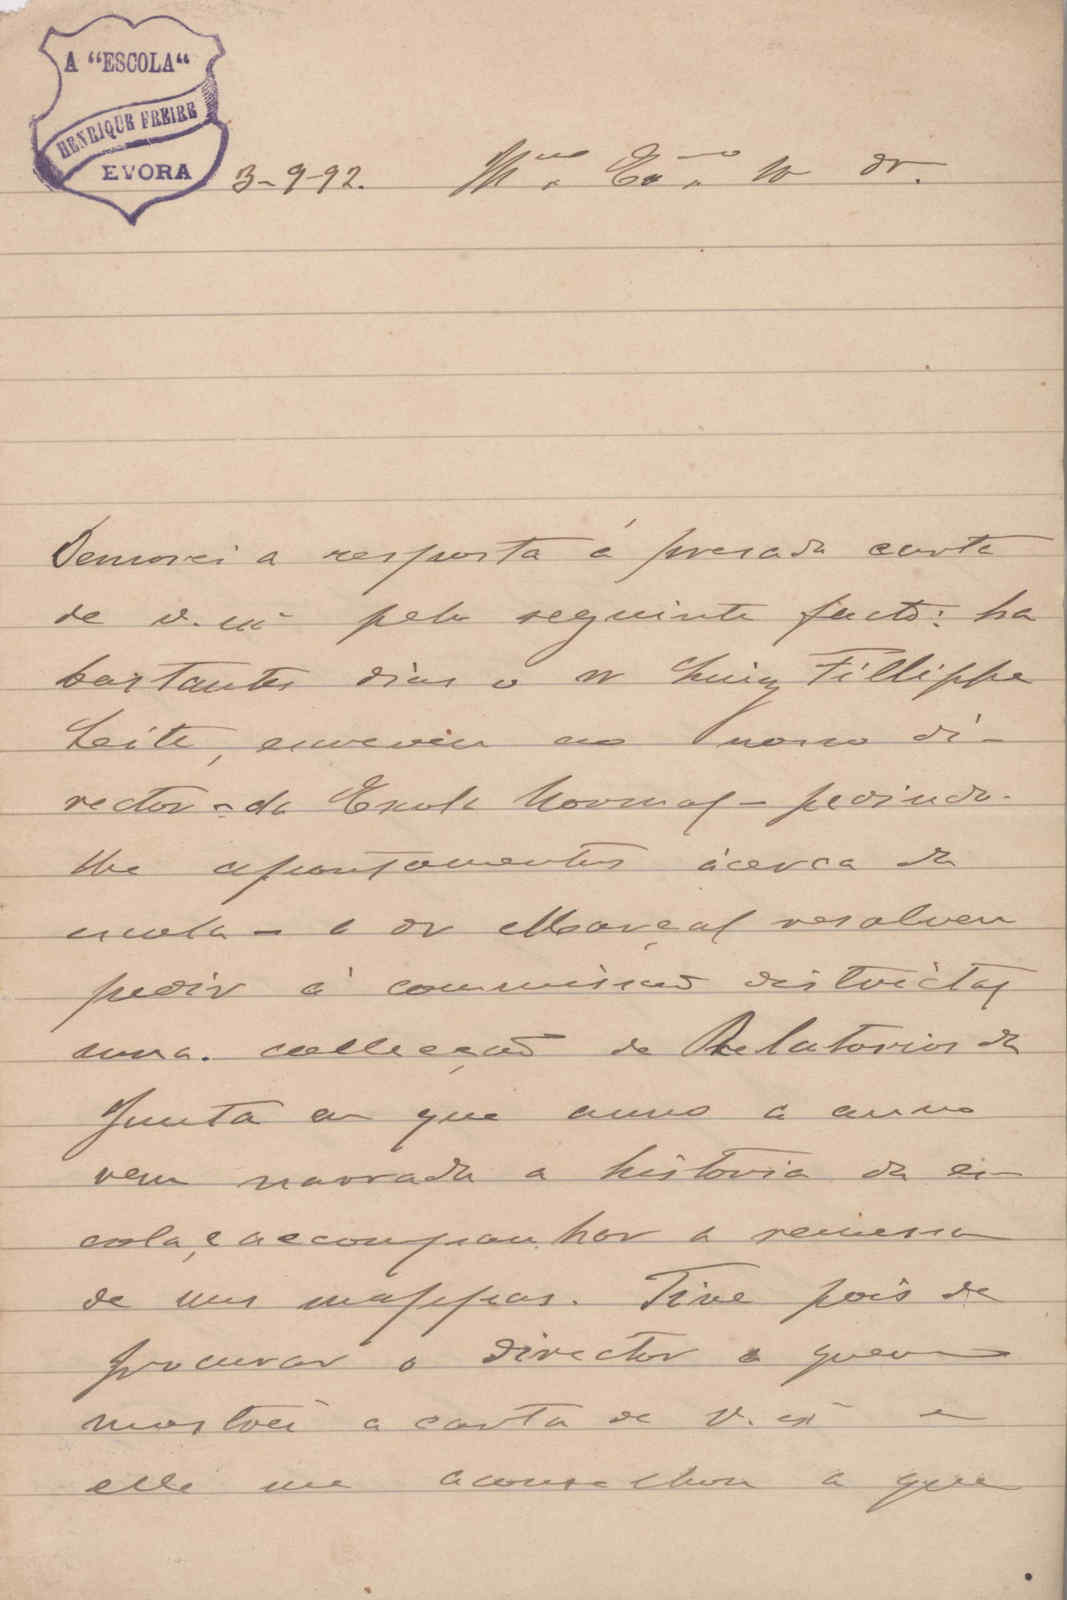 A “ESCOLA“
HENRIQUE FREIRE
EVORA
3-9-92. Ill.mo Ex.mo Sr dr.
Demorei a resposta á presada carta
de v. exª pelo seguinte facto: ha
bastantes dias o sr Luiz Fillippe
Leite, escreveu ao nosso di-
rector - da Escola Normal - pedindo-
lhe apontamentos ácerca da
escola - e o dr Marçal resolveu
pedir á commissão districtal
uma collecção de Relatorios da
Junta em que anno a anno
vem narrada a historia da es-
cola, e accompanhar a remessa
de uns mappas. Tive pois de
procurar o director a quem
mostrei a carta de v. exª e
elle me aconselhou a que